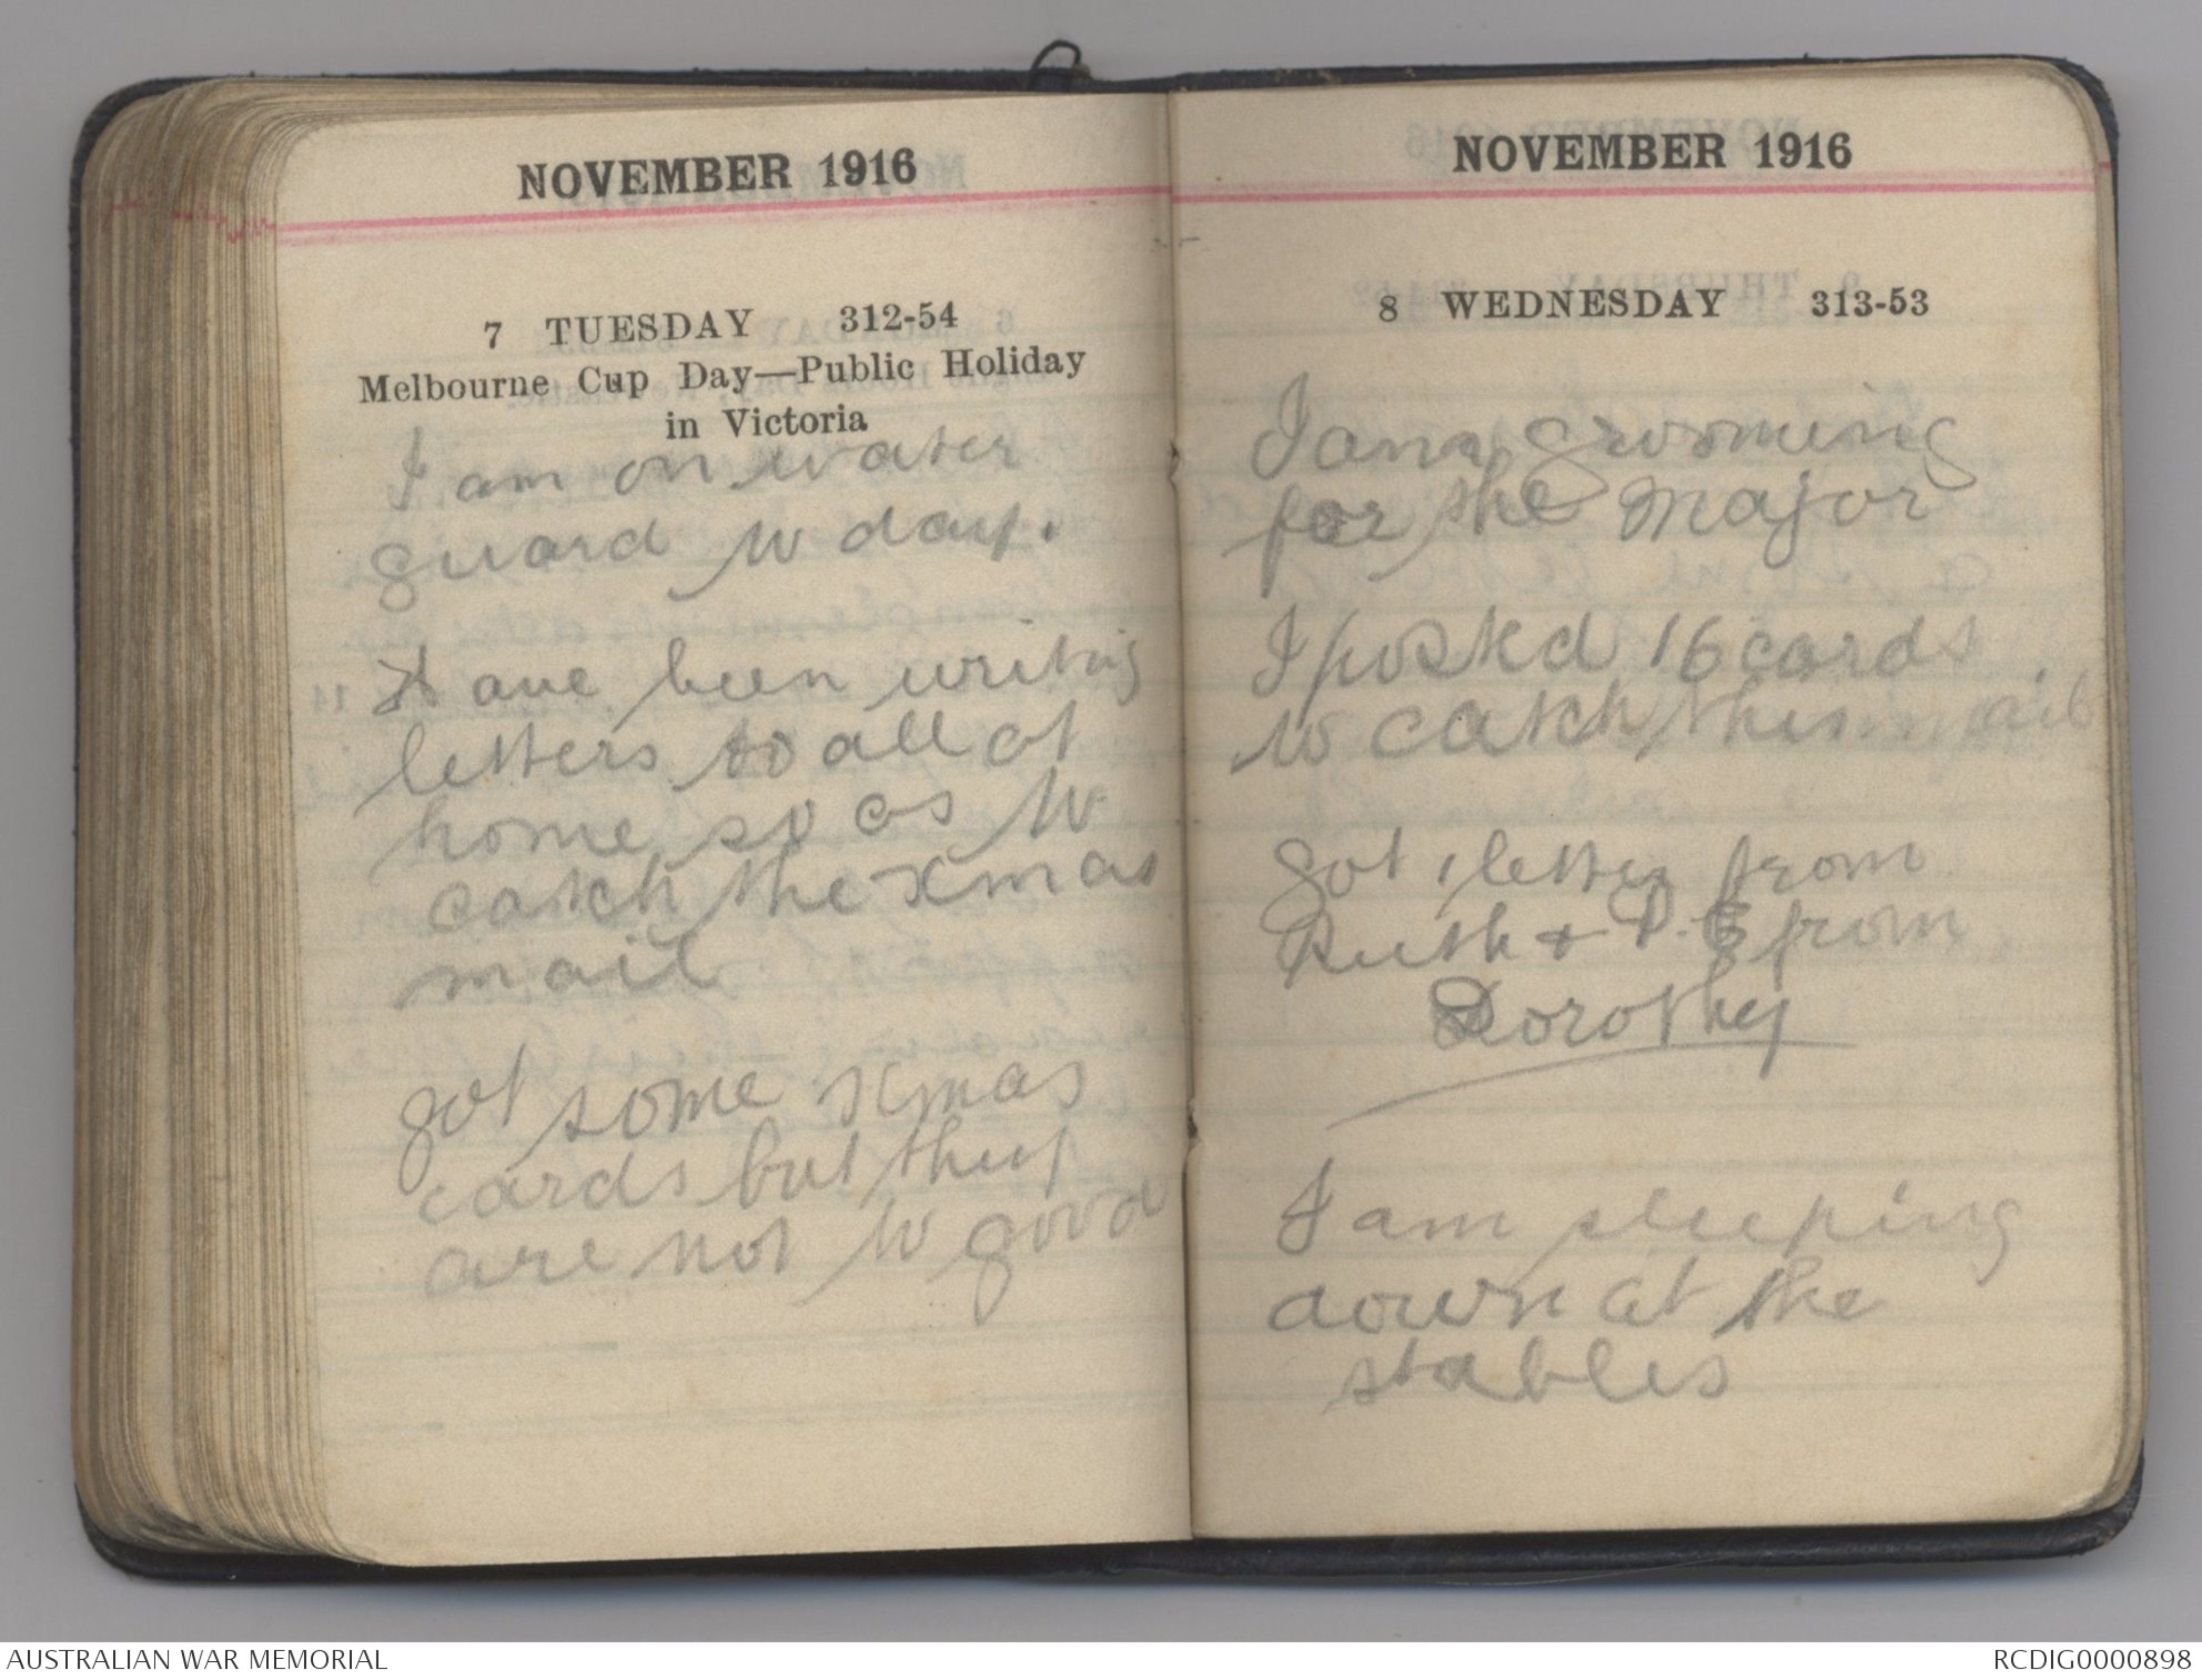 NOVEMBER 1916
7 TUESDAY 312-54
Melbourne Cup Day—Public Holiday
in Victoria
I am on water
guard to day.
Have been writing
letters to all at
home so as to
catch the Xmas
mail
got some xmas
cards but they
are not to good
NOVEMBER 1916
8 WEDNESDAY 313-53
I am grooming
for the Major
I posted 16 cards
to catch this mail
got 1 letter from
Ruth & P.C from
Dorothy
I am sleeping
down at the
stables
AUSTRALIAN WAR MEMORIAL
RCDIG0000898